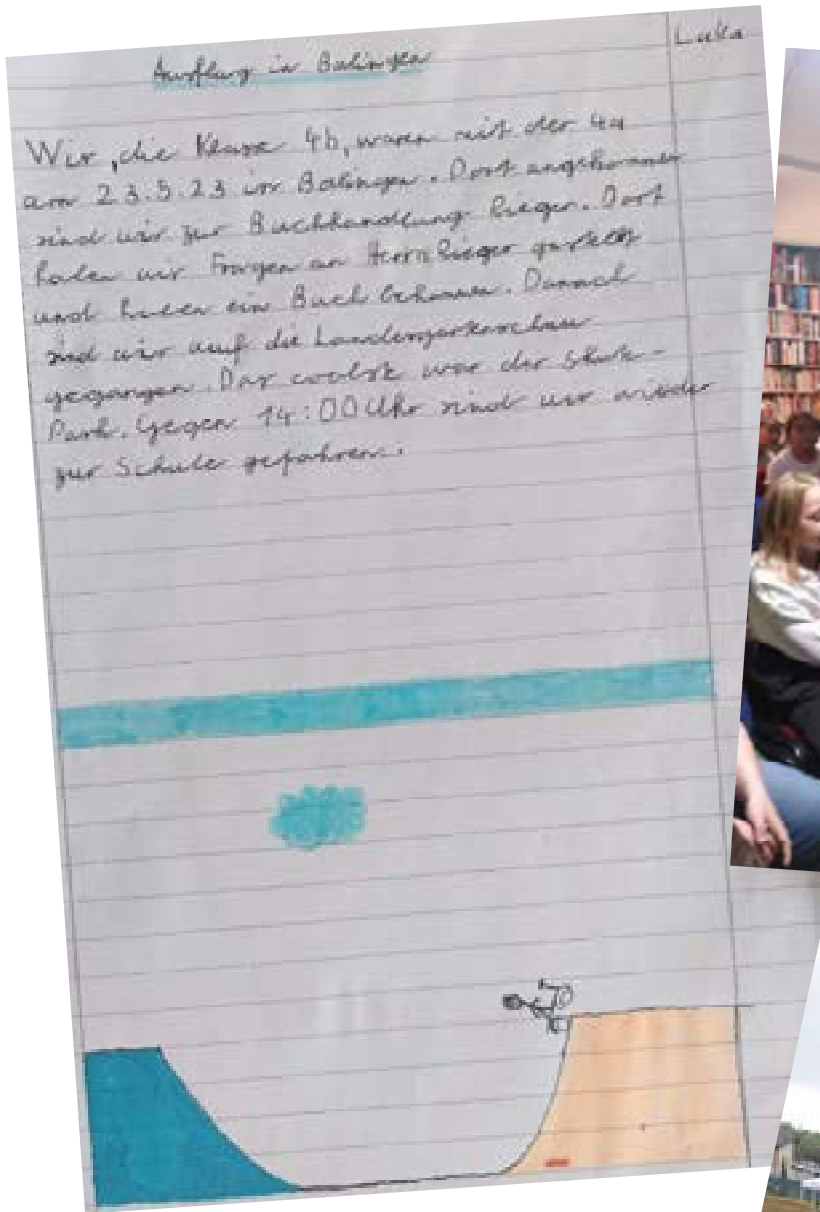 Ausflug in Balingen
Luka
Wir, die Klasse 4b, waren mit der 4a
am 23.5.23 in Balingen. Dort angekommen
sind wir zur Buchhandlung Rieger. Dort
haben wir Fragen an Herrn Rieger gestellt
und haben ein Buch bekommen. Danach
sind wir auf die Landesgartenschau
gegangen. Das coolste war der Skate-
Park. Gegen 14:00 Uhr sind wir wieder
zur Schule gefahren.